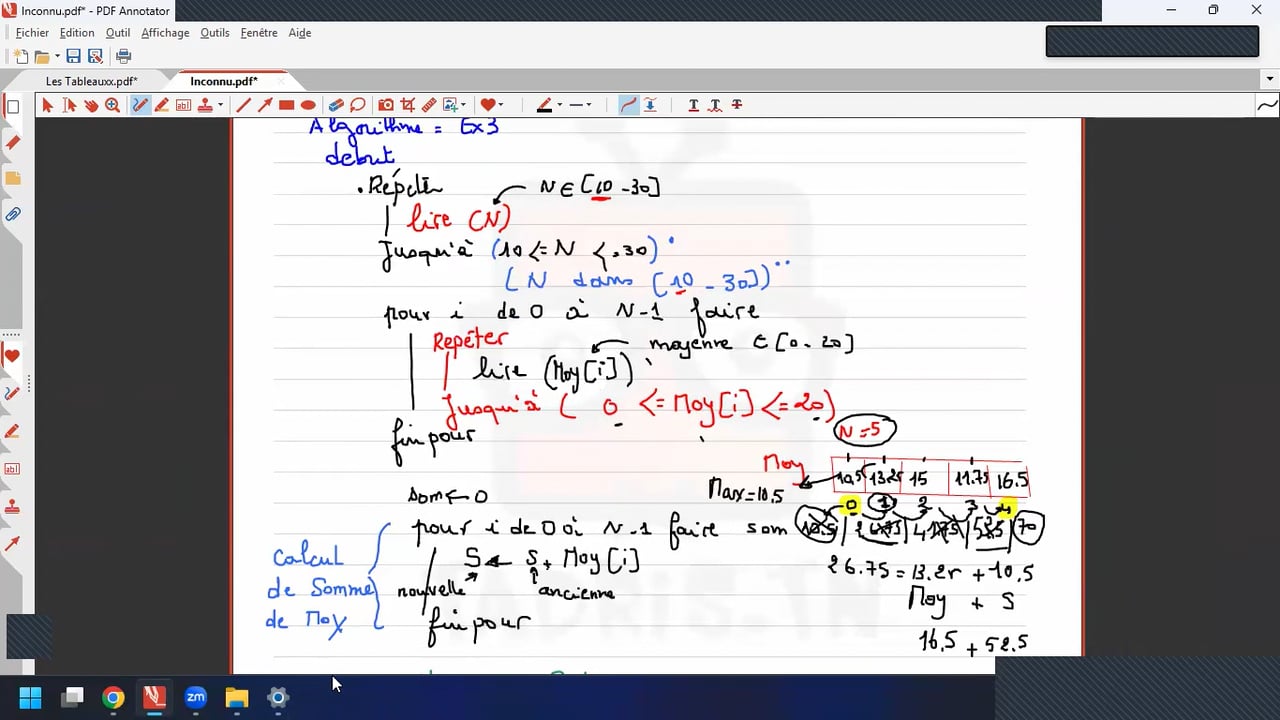 Inconnu.pdf* - PDF Annotator
Fichier Edition Outil Affichage Outils Fenêtre Aide
Les Tableauxx.pdf* Inconnu.pdf*
Algorithme = Ex3
debut
. Répéter N ∈ [10 - 30]
lire (N)
Jusqu'à (10 <= N <= 30)
(N dans [10 - 30])
pour i de 0 à N-1 faire
Repéter moyenne ∈ [0 - 20]
lire (Moy[i])
Jusqu'à ( 0 <= Moy[i] <= 20)
fin pour N = 5
Moy 10,5 13.25 15 11.75 16.5
som ← 0 Max = 10.5 0 1 2 3 4
pour i de 0 à N-1 faire som 10.5 70
calcul S ← S + Moy[i] 26.75 = 13.25 + 10.5
de Somme nouvelle ancienne Moy + S
de Moy fin pour 16.5 + 52.5